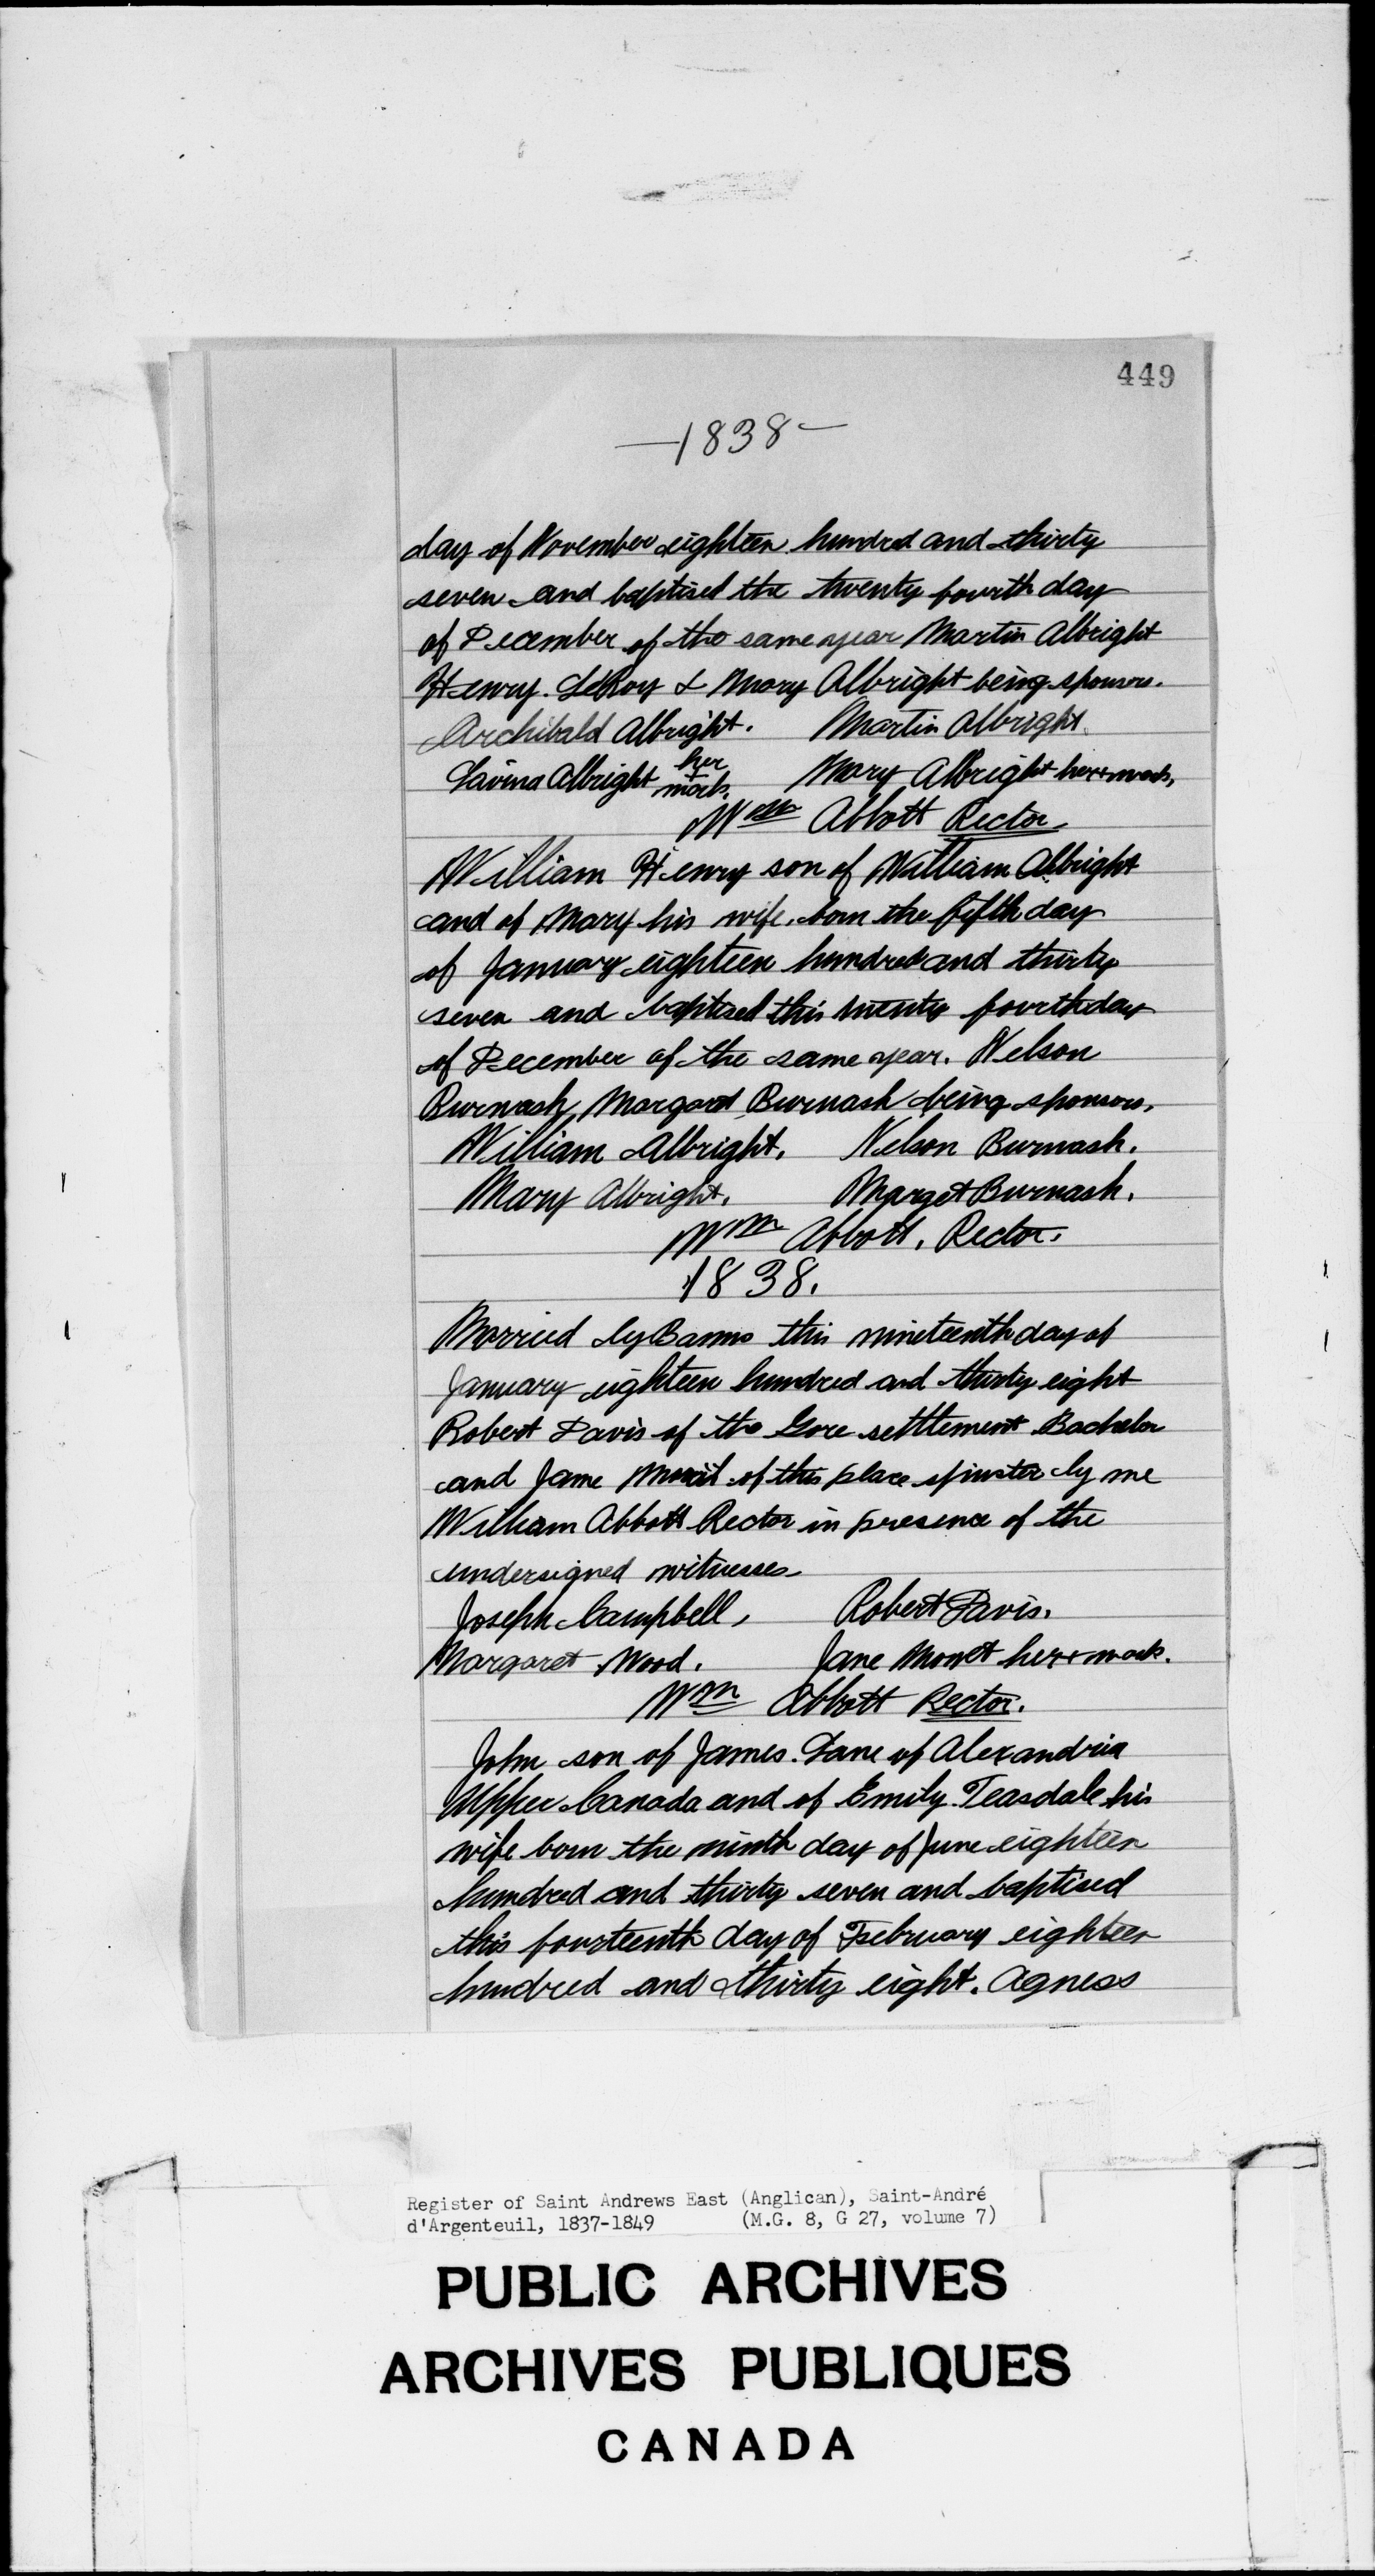 449
—1838—
day of November eighteen hundred and thirty
seven and baptised the twenty fourth day
of December of the same year Martin Albright
Henry. LeRoy & Mary Albright being sponsors.
Archibald Albright. Martin Albright.
Lavina Albright her + mark. Mary Albright her x mark.
Wm Abbott Rector.
William Henry son of William Albright
and of Mary his wife. born the fifth day
of January eighteen hundred and thirty
seven and baptised this twenty fourth day
of December of the same year. Nelson
Burwash, Margaret Burwash being sponsors.
William Albright. Nelson Burwash.
Mary Albright. Marget Burwash.
Wm Abbott. Rector.
1838.
Married by Banns this nineteenth day of
January eighteen hundred and thirty eight
Robert Davis of the Gore settlement Bachelor
and Jane of this place spinster by me
William Abbott Rector in presence of the
undersigned witnesses
Joseph Campbell, Robert Davis.
Margaret Wood. Jane her x mark.
Wm Abbott Rector.
John son of James. Lane of Alexandria
Upper Canada and of Emily Teasdale his
wife born the ninth day of June eighteen
hundred and thirty seven and baptised
this fourteenth day of February eighteen
hundred and thirty eight. Agness
Register of Saint Andrews East (Anglican), Saint-André
d'Argenteuil, 1837-1849 (M.G. 8, G 27, volume 7)
PUBLIC ARCHIVES
ARCHIVES PUBLIQUES
CANADA